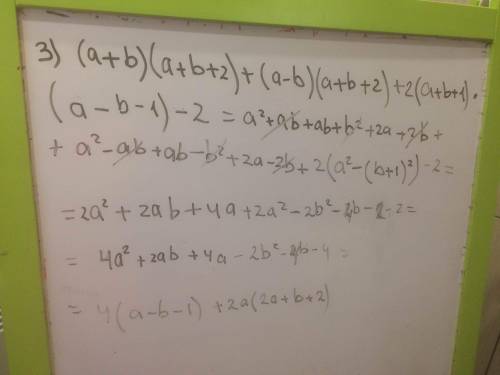 3) (a+b)(a+b+2)+(a-b)(a+b+2)+2(a+b+1)·
(a-b-1)-2 = a²+ab+ab+b²+2a+2b+
+ a²-ab+ab-b²+2a-2b+2(a²-(b+1)²)-2=
=2a²+2ab+4a+2a²-2b²-4b-2-2=
= 4a²+2ab+4a-2b²-4b-4=
= 4(a-b-1)+2a(2a+b+2)